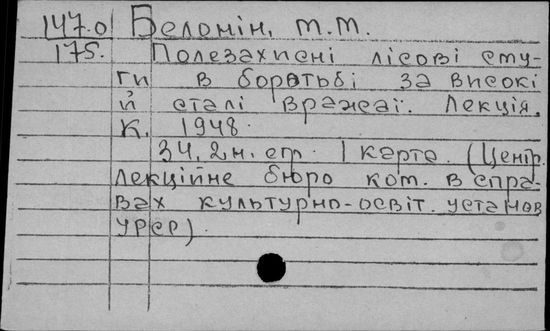 147.0 Беломін, Т.Т.
175. Полезахисні лісові сму-
ги в боротьбі за високі
й сталі врожаї. Лекція.
К. 1948.
34, 2 н. стр. 1 карта. (Центр.
Лекційне бюро ком. в спра-
вах культурно-освіт. установ
УРСР)